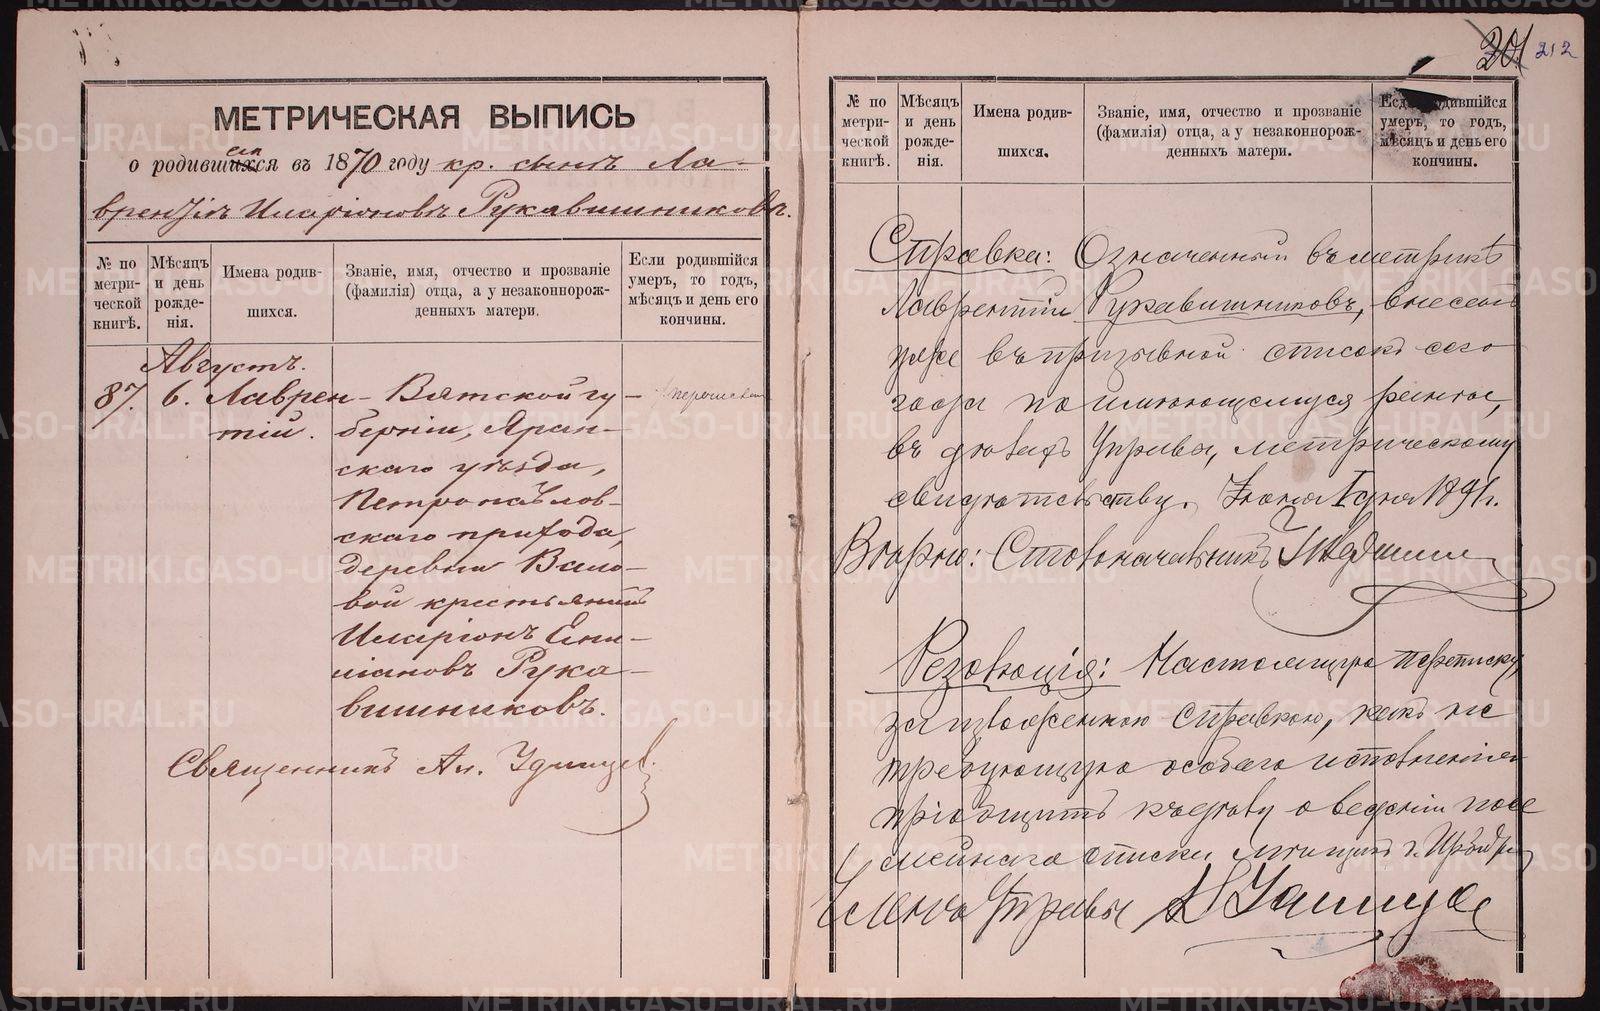 МЕТРИЧЕСКАЯ ВЫПИСЬ
о родившихся въ 1870 году кр. сынъ Ла-
врентій Иларіоновъ Рукавишниковъ.
№ по метри-ческой книгѣ.
Мѣсяцъ и день рожде-нія.
Имена родив-шихся.
Званіе, имя, отчество и прозваніе (фамилія) отца, а у незаконнорож-денныхъ матери.
Если родившійся умеръ, то годъ, мѣсяцъ и день его кончины.
Августъ.
87. 6. Лаврен- Вятской гу-
тій. берніи, Яран-
скаго уѣзда,
Петропавлов-
скаго прихода,
деревни Вало-
вой крестьянинъ
Иларіонъ Епи-
мановъ Рука-
вишниковъ.
Священникъ Ал. Удинцев.
201 212
№ по метри-ческой книгѣ.
Мѣсяцъ и день рожде-нія.
Имена родив-шихся.
Званіе, имя, отчество и прозваніе (фамилія) отца, а у незаконнорож-денныхъ матери.
Если родившійся умеръ, то годъ, мѣсяцъ и день его кончины.
Справка: Означенный въ метрикѣ
Лаврентій Рукавишниковъ, внесенъ
уже въ призывной списокъ сего
года по имѣющемуся ранѣе,
въ дѣлахъ Управы, метрическому
свидѣтельству. Іюня 1 дня 1891 г.
Вѣрно: Столоначальникъ
Резолюція: Настоящую переписку,
за изложенною справкою, какъ не
требующую особаго исполненія
пріобщить къ дѣлу о веденіи посе
мейнаго списка мѣщанъ г. Ирбити
Членъ Управы
METRIKI.GASO-URAL.RU